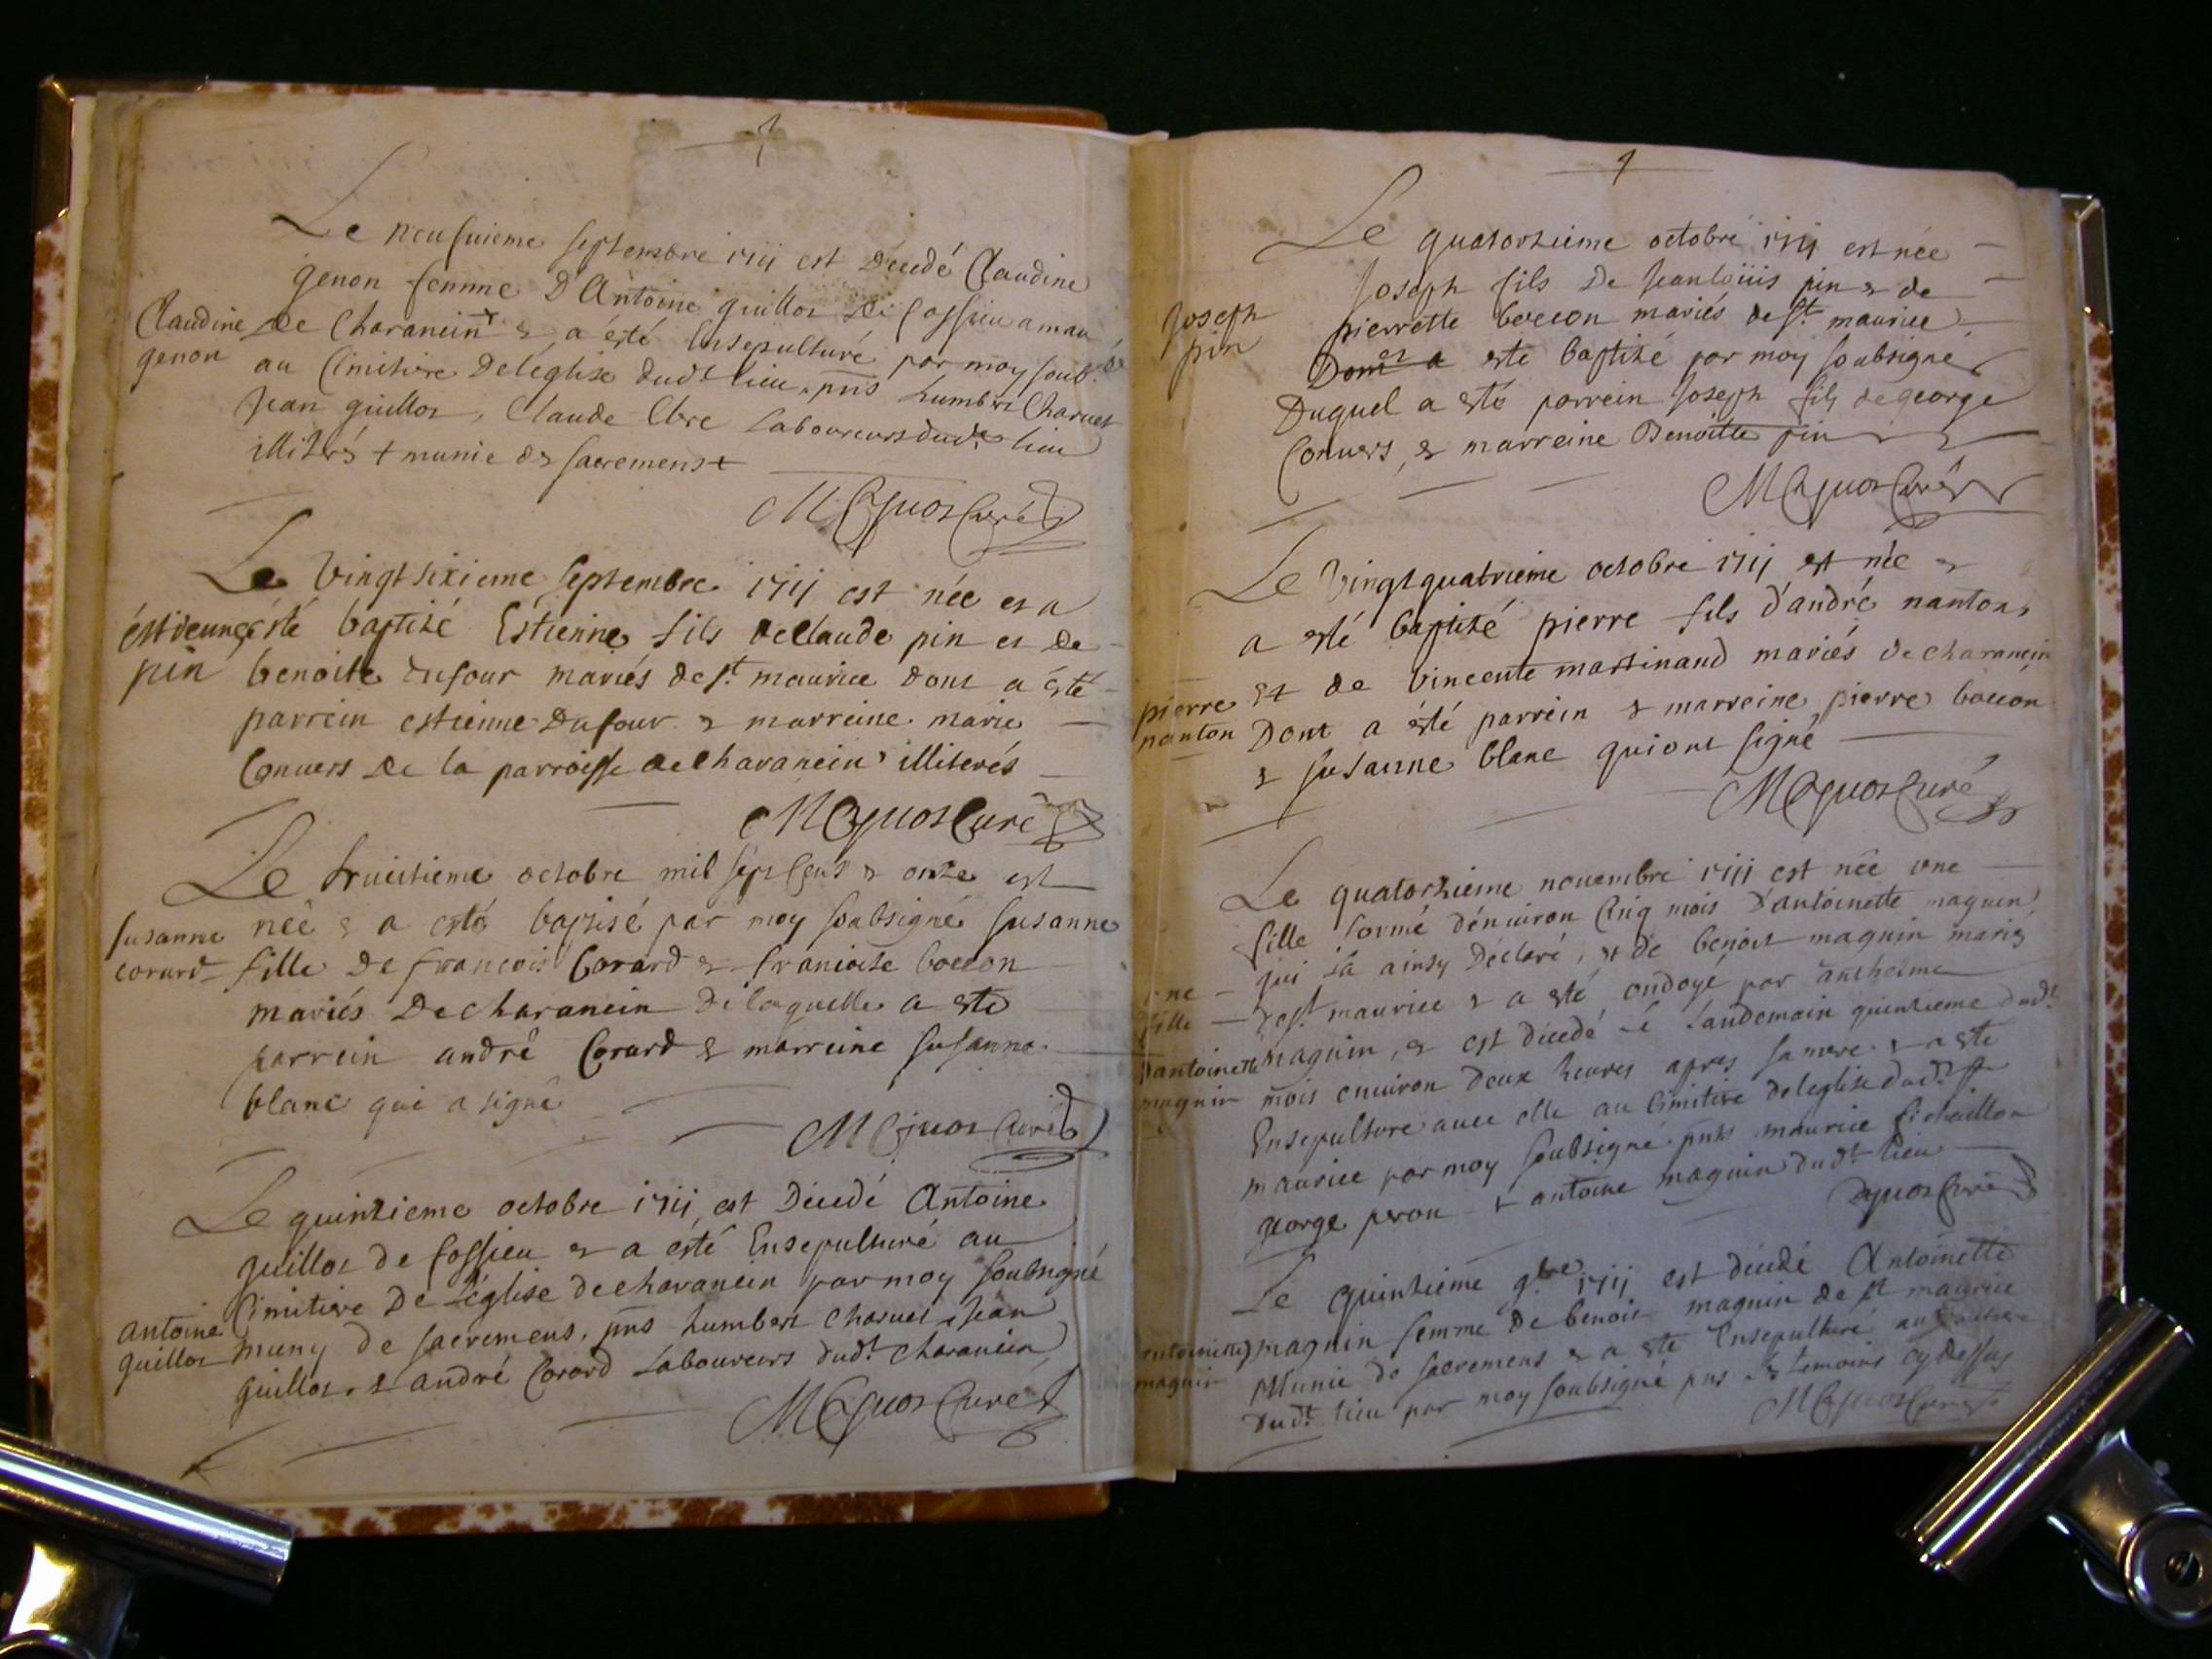 Le neufuieme septembre 1711 est décedé Claudine
genon femme D'Antoine guillot de fossieu
Claudine
genon
de Charancin & a ésté Ensepulturé par moy soub.né
au Cimitiere De léglise dudt lieu, pnts humbert Charuet
Jean guillot, Claude Laboureurs dudt lieu
illiterés + munie des sacremens +
Curé
Le vingt sixieme septembre 1711 est née et a
éstienne
pin
ésté baptizé Estienne fils de Claude pin et De
benoite dufour mariés de st maurice dont a ésté
parrein estienne Dufour & marreine marie
Conuers De la parroisse de Charancin illiterés
Curé
Le huictieme octobre mil sept Cens & onze est
susanne
corard
née & a esté baptisé par moy soubsigné susanne
fille De francois Corard & francoise boccon
mariés De charancin De laquelle a esté
parrein andré Corard & marreine susanne
blanc qui a signé
Curé
Le quinzieme octobre 1711 est Décedé Antoine
guillot de fossieu & a esté Ensepulturé au
Cimitiere De L'église de charancin par moy soubsigné
antoine
guillot
muny de sacremens, pnts humbert charuet, Jean
guillot, & andré Corard Laboureurs dudt charancin
Curé
Le quatorzieme octobre 1711 est née
Joseph fils De Jean loüis pin & de
Joseph
pin
pierrette boccon mariés de st maurice
& a este baptizé par moy soubsigné
Duquel a esté parrein Joseph fils de george
Conuers, & marreine Benoitte pin
Curé
Le vingt quatrieme octobre 1711 est née &
a esté baptizé pierre fils d'andré nanton
pierre
nanton
et de vincente martinand mariés de charancin
Dont a ésté parrein & marreine pierre boccon
& susanne blanc qui ont signé
Curé
Le quatorzieme nouembre 1711 est née une
fille formé d'enuiron Cinq mois d'antoinette maguin
qui la ainsy Déclaré, & de benoit maguin mariés
une
fille
D'antoinette
maguin
de st maurice & a esté ondoyé par anthelme
maguin, & est décedé le Landemain quinzieme dudt
mois enuiron deux heures apres sa mere & a esté
Ensepulture auec elle au Cimitire de leglise dudt st
maurice par moy soubsigné pnts maurice
george peron & antoine maguin dudt lieu
Curé
Le quinzieme 9bre 1711 est décedé Antoinette
antoinette
maguin
maguin femme de benoit maguin de st maurice
Munie de sacremens & a esté Ensepulturé au
dudt lieu par moy soubsigné pnts les temoins cy dessus
Curé